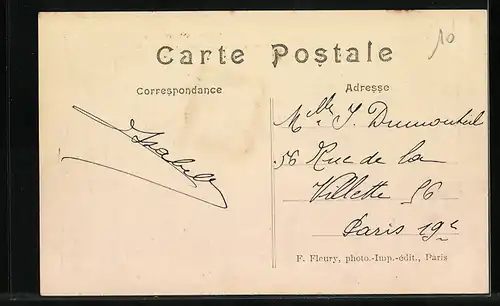 10
Carte Postale
Correspondance
Adresse
Isabelle
Mlle J. Dumontheil
56 Rue de la
Villette 56
Paris 19e
F. Fleury, photo.-Imp.-édit., Paris